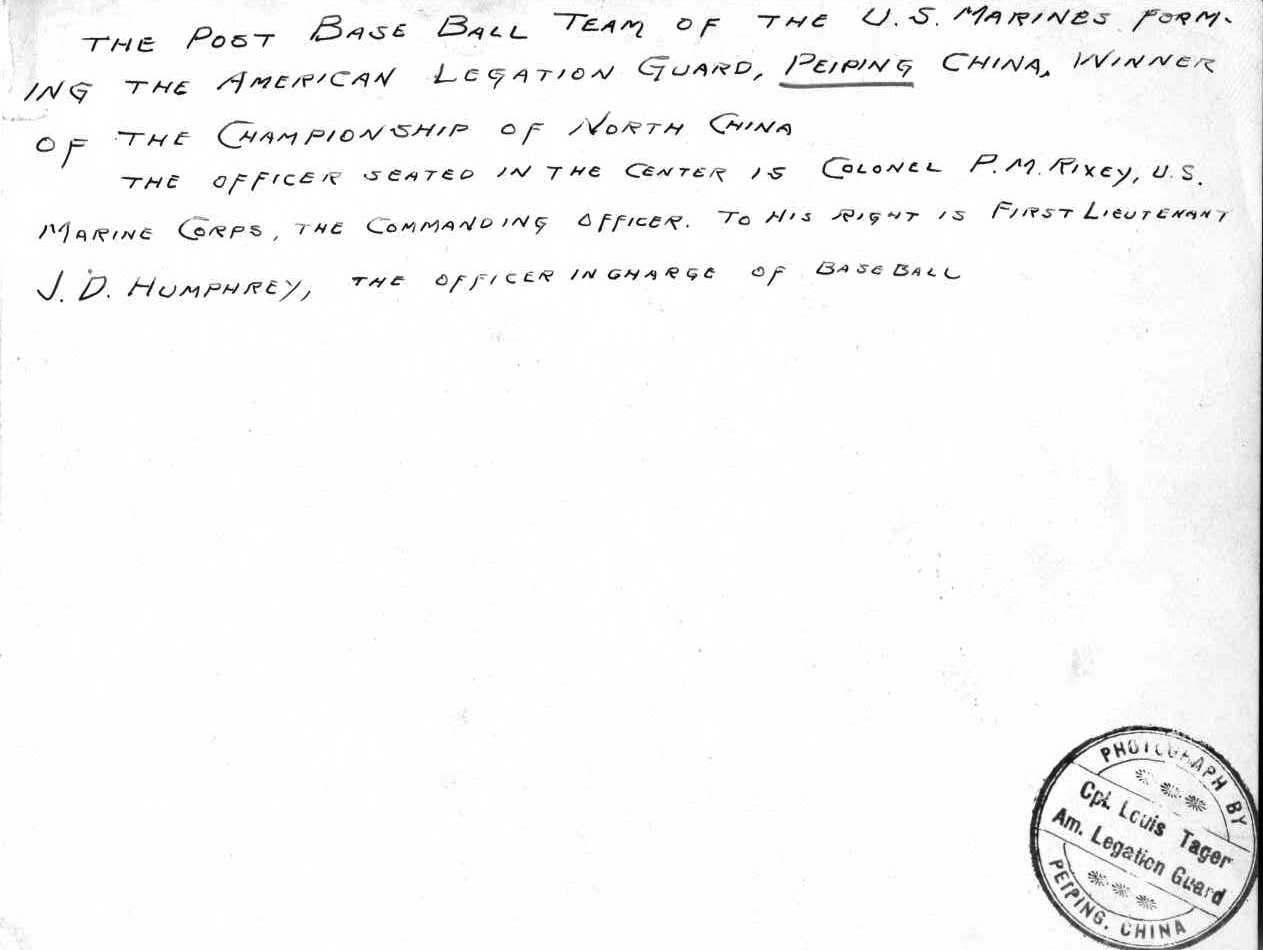 THE POST BASE BALL TEAM OF THE U.S. MARINES FORM-
ING THE AMERICAN LEGATION GUARD, PEIPING CHINA, WINNER
OF THE CHAMPIONSHIP OF NORTH CHINA
THE OFFICER SEATED IN THE CENTER IS COLONEL P.M. RIXEY, U.S.
MARINE CORPS, THE COMMANDING OFFICER. TO HIS RIGHT IS FIRST LIEUTENANT
J.D. HUMPHREY, THE OFFICER IN CHARGE OF BASEBALL
PHOTOGRAPH BY
Cpl. Louis Tager
Am. Legation Guard
PEIPING, CHINA